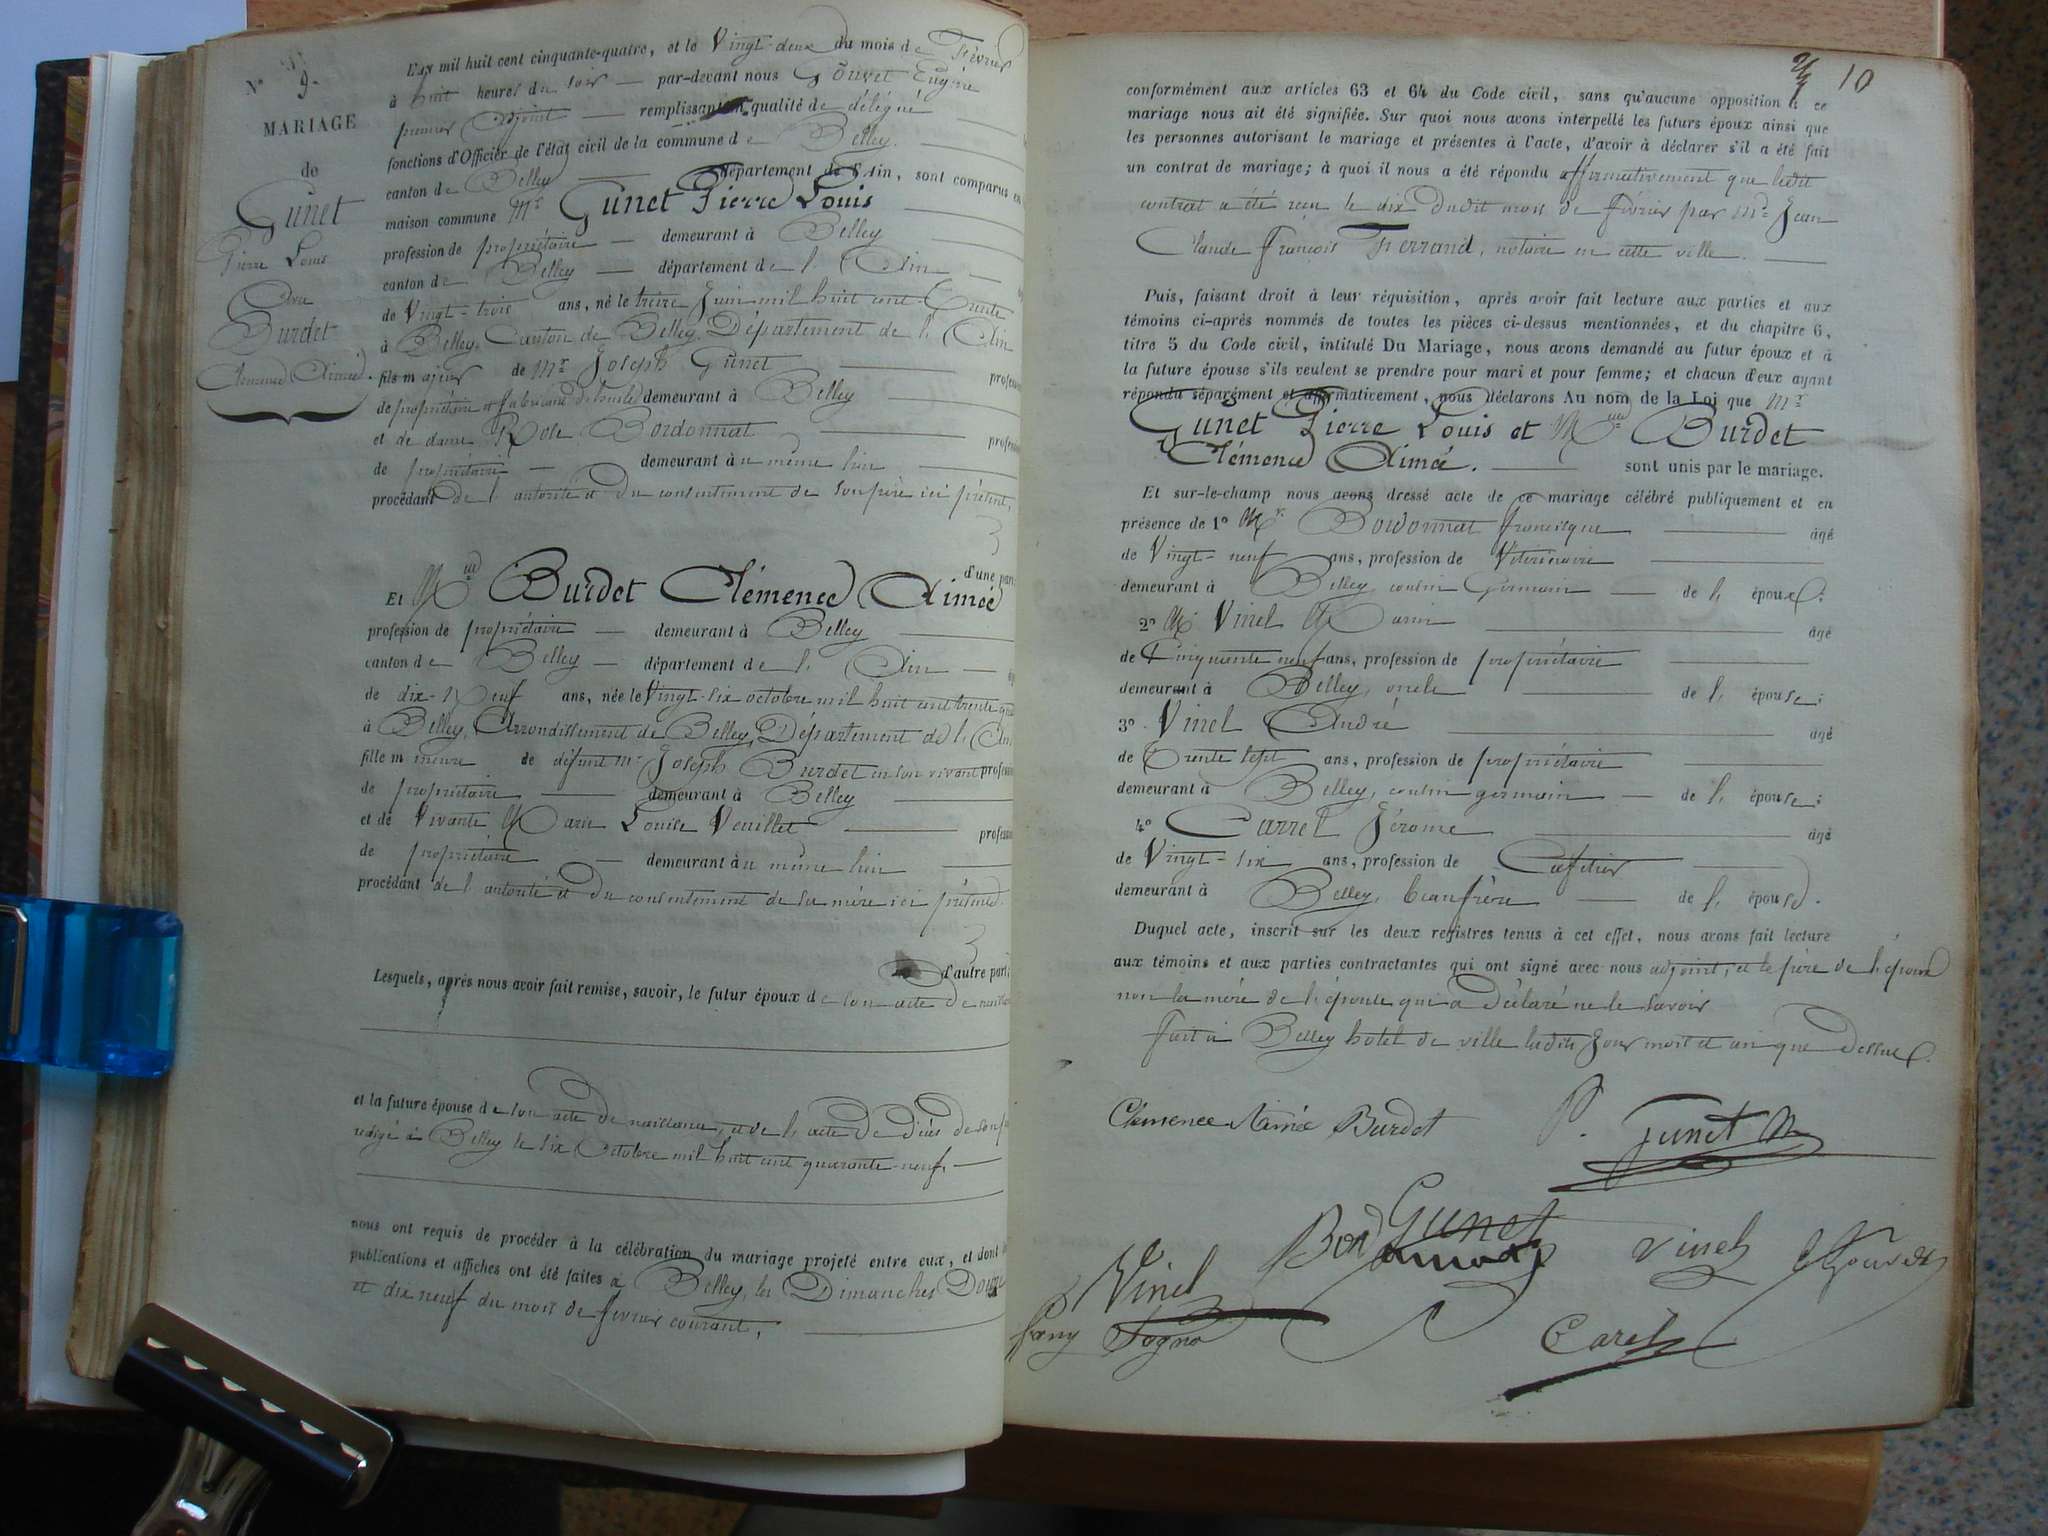 N° 9.
MARIAGE
de
Gunet
Pierre Louis
et
Burdet
Clémence Aimée.
L'an mil huit cent cinquante-quatre, et le Vingt-deux du mois de Février
à huit heures du soir par-devant nous Gouvet Eugène
premier adjoint remplissant en qualité de délégué
fonctions d'Officier de l'état civil de la commune de Belley.
canton de Belley département de l'Ain, sont comparus en
maison commune Mr Gunet Pierre Louis
profession de propriétaire demeurant à Belley
canton de Belley département de l'Ain
de Vingt-trois ans, né le treize Juin mil huit cent trente
à Belley, Canton de Belley, Département de l'Ain
fils majeur de Mr Joseph Gunet
de propriétaire et fabricant d'huile demeurant à Belley
et de dame Rose Bordonnat
de propriétaire demeurant au même lieu
procédant de l'autorité et du consentement de son père ici présent,
d'une part
Et Mlle Burdet Clémence Aimée
profession de propriétaire demeurant à Belley
canton de Belley département de l'Ain
de dix-neuf ans, née le Vingt-six octobre mil huit cent trente
à Belley, Arrondissement de Belley, Département de l'Ain
fille mineure de défunt Mr Joseph Burdet en son vivant
de propriétaire demeurant à Belley
et de Vivante Marie Louise Vouillet
de propriétaire demeurant au même lieu
procédant de l'autorité et du consentement de sa mère ici présente.
d'autre part;
Lesquels, après nous avoir fait remise, savoir, le futur époux de son acte de
et la future épouse de son acte de naissance, et de l'acte de décès de son
rédigé à Belley le six Octobre mil huit cent quarante-neuf,
nous ont requis de procéder à la célébration du mariage projeté entre eux, et dont
publications et affiches ont été faites à Belley, les Dimanches Douze
et dix neuf du mois de février courant,
10
conformément aux articles 63 et 64 du Code civil, sans qu'aucune opposition à ce
mariage nous ait été signifiée. Sur quoi nous avons interpellé les futurs époux ainsi que
les personnes autorisant le mariage et présentes à l'acte, d'avoir à déclarer s'il a été fait
un contrat de mariage; à quoi il nous a été répondu affirmativement que ledit
contrat a été reçu le dix dudit mois de février par Me Jean
Claude François Ferrand, notaire en cette ville.
Puis, faisant droit à leur réquisition, après avoir fait lecture aux parties et aux
témoins ci-après nommés de toutes les pièces ci-dessus mentionnées, et du chapitre 6,
titre 5 du Code civil, intitulé Du Mariage, nous avons demandé au futur époux et à
la future épouse s'ils veulent se prendre pour mari et pour femme; et chacun d'eux ayant
répondu séparément et affirmativement, nous déclarons Au nom de la Loi que Mr
Gunet Pierre Louis et Mlle Burdet
Clémence Aimée. sont unis par le mariage.
Et sur-le-champ nous avons dressé acte de ce mariage célébré publiquement et en
présence de 1° Mr. Bordonnat francisque âgé
de Vingt-neuf ans, profession de Vétérinaire
demeurant à Belley, cousin Germain de l'époux.
2° Mr Vinel Marin âgé
de Cinquante neuf ans, profession de propriétaire
demeurant à Belley, oncle de l'épouse;
3° Vinel André âgé
de Trente sept ans, profession de propriétaire
demeurant à Belley, cousin germain de l'épouse;
4° Carrel Jérome âgé
de Vingt-six ans, profession de Cafetier
demeurant à Belley, beau frère de l'épouse.
Duquel acte, inscrit sur les deux registres tenus à cet effet, nous avons fait lecture
aux témoins et aux parties contractantes qui ont signé avec nous adjoint, et le père de l'époux
non la mère de l'épouse qui a déclaré ne le savoir
fait à Belley hotel de ville ledit Jour mois et an que dessus.
Clémence Aimée Burdet P. Gunet
Gunet
Bordonnat Vinel E Gouvet
Vinel
fany Sogno Carel